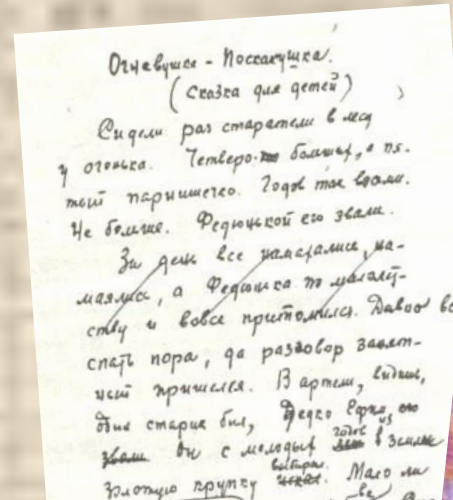 Огневушка - Поскакушка.
(Сказка для детей)
Сидели раз старатели в лесу
у огонька. Четверо больших, а пя-
тый парнишечко. Годов так восьми.
Не больше. Федюнькой его звали.
За день все намаялись, а Федюнька по малолет-
ству и вовсе притомился. Давно
спать пора, да разговор занят-
ный пришелся. В артели, видишь,
один старик был, Дедко Ефим.
Он с молодых годов из земли
золотую крупку выбирал. Мало ли